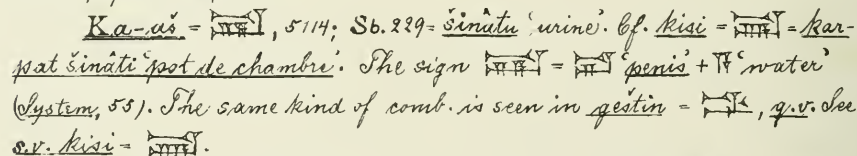 Ka-aš = 𒆍, 5114; Sb. 229 = šinâtu 'urine'. Cf. kisi = = kar-
pat šinâti 'pot de chambre'. The sign = 'penis' + 'water'
(System, 55). The same kind of comb. is seen in geštin = , q.v. See
s.v. kisi = .